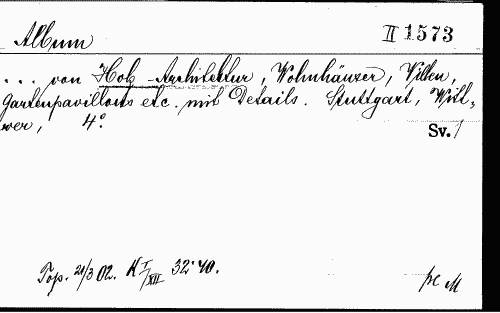 Album II 1573
... von Holz-Architektur, Wohnhäuser, Villen,
Gartenpavillons etc. mit Details. Stuttgart, Witt-
wer, 4°.
Sv. 1
Top. 21/3 02. K I/XII 32·40.
pc M